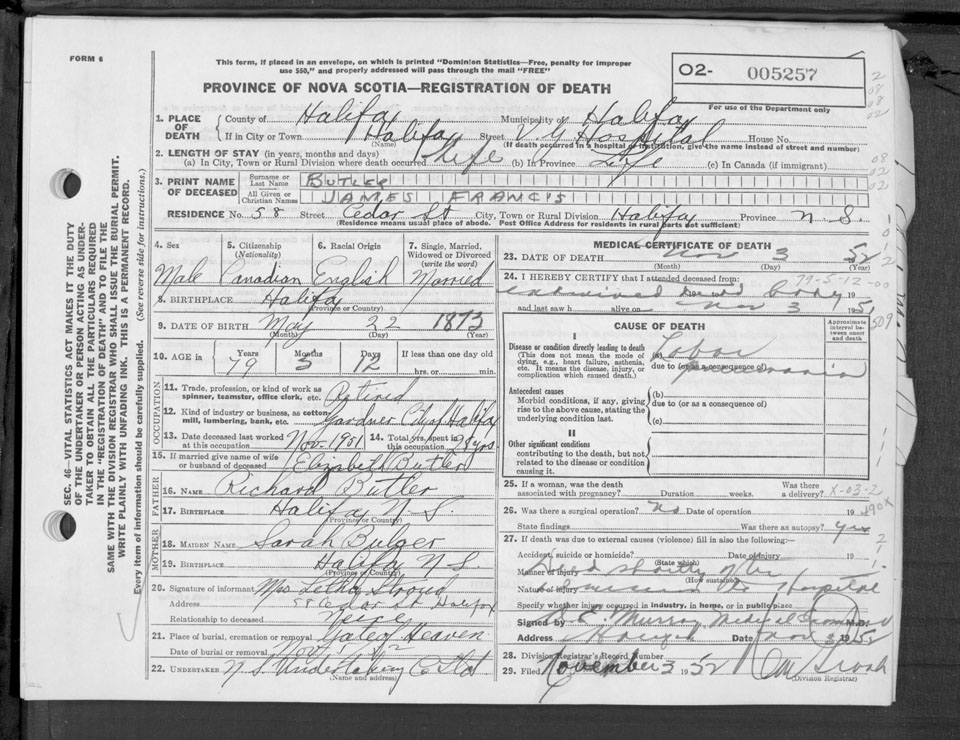 FORM 6
This form, if placed in an envelope, on which is printed "Dominion Statistics—Free, penalty for improper
use 550," and properly addressed will pass through the mail "FREE"
PROVINCE OF NOVA SCOTIA—REGISTRATION OF DEATH
O2- 005257
For use of the Department only
1. PLACE OF DEATH
County of Halifax Municipality of Halifax
If in City or Town Halifax Street V G Hospital House No.
(Name) (If death occurred in a hospital or institution, give the name instead of street and number)
2. LENGTH OF STAY (in years, months and days)
(a) In City, Town or Rural Division where death occurred Life (b) In Province Life (c) In Canada (if immigrant)
3. PRINT NAME OF DECEASED
Surname or Last Name BUTLER
All Given or Christian Names JAMES FRANCIS
RESIDENCE No. 58 Street Cedar St City, Town or Rural Division Halifax Province N.S.
(Residence means usual place of abode. Post Office Address for residents in rural parts not sufficient)
4. Sex 5. Citizenship (Nationality) 6. Racial Origin 7. Single, Married, Widowed or Divorced (write the word)
Male Canadian English Married
8. BIRTHPLACE Halifax
(Province or Country)
9. DATE OF BIRTH May 22 1873
(Month) (Day) (Year)
10. AGE in Years Months Days If less than one day
79 5 12 hrs. or min.
OCCUPATION
11. Trade, profession or kind of work as
spinner, teamster, office clerk, etc. Retired
12. Kind of industry or business, as cotton
mill, lumbering, bank, etc. Gardner City of Halifax
13. Date deceased last worked at this occupation Nov-1951 14. Total yrs. spent in this occupation 28 yrs.
15. If married give name of wife
or husband of deceased Elizabeth Butler
FATHER
16. NAME Richard Butler
17. BIRTHPLACE Halifax N.S.
(Province or Country)
MOTHER
18. MAIDEN NAME Sarah Bulger
19. BIRTHPLACE Halifax N.S.
(Province or Country)
20. Signature of informant Mrs Letha Stroud
Address 58 Cedar St Halifax
Relationship to deceased Niece
21. Place of burial, cremation or removal
Date of burial or removal Nov.
22. UNDERTAKER N.S. Undertaking Co Ltd
(Name and address)
MEDICAL CERTIFICATE OF DEATH
23. DATE OF DEATH Nov 3 52
(Month) (Day) (Year)
24. I HEREBY CERTIFY that I attended deceased from:
body 19
and last saw h alive on Nov 3 195
CAUSE OF DEATH
Approximate interval between onset and death
I
Disease or condition directly leading to death
(This does not mean the mode of
dying, e.g., heart failure, asthenia,
etc. It means the disease, injury, or
complication which caused death.)
(a) Lobar
due to (or as a consequence of)
pneumonia
Antecedent causes
Morbid conditions, if any, giving
rise to the above cause, stating the
underlying condition last.
(b)
due to (or as a consequence of)
(c)
II
Other significant conditions
contributing to the death, but not
related to the disease or condition
causing it.
25. If a woman, was the death
associated with pregnancy? Duration weeks. Was there a delivery?
26. Was there a surgical operation? No Date of operation 19
State findings Was there an autopsy? yes
27. If death was due to external causes (violence) fill in also the following:
Accident, suicide or homicide? Date of injury 19
(State which)
Manner of injury Died shortly after
(How sustained)
Nature of injury admission to Hospital
Specify whether injury occurred in industry, in home, or in public place
Signed by E. Murray Medical Examiner M.D.
Address Date Nov 3 195
28. Division Registrar's Record Number
29. Filed November 3 1952
(Division Registrar)
SEC. 46—VITAL STATISTICS ACT MAKES IT THE DUTY
OF THE UNDERTAKER OR PERSON ACTING AS UNDER-
TAKER TO OBTAIN ALL THE PARTICULARS REQUIRED
IN THE "REGISTRATION OF DEATH" AND TO FILE THE
SAME WITH THE DIVISION REGISTRAR WHO SHALL ISSUE THE BURIAL PERMIT.
WRITE PLAINLY WITH UNFADING INK. THIS IS A PERMANENT RECORD.
Every item of information should be carefully supplied. (See reverse side for instructions.)